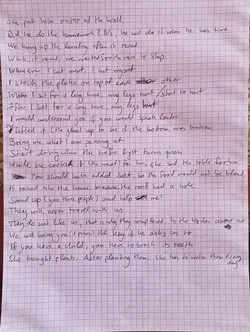 She put wire on top of the wall
Did he do the homework? No, he will do it when he has time
We hung up the laundry after it rained
While it rained, we waited for the rain to stop
Whenever I eat meat, I hurt myself
I stack the plates on top of each other
When I sit for a long time, my legs hurt / start to hurt
After I sat for a long time, my legs hurt
I would understand you if you would speak louder
I lifted it (the glass) up to see if the bottom was broken
Bring me what I am pointing at
Start driving when the light turns green
While he cooked it (the meal) for her, she set the table for two
You should have added salt, so the food would not be bland
It rained into the house because the roof had a hole
Stand up (you three people) and help me!
They will never travel with us
They do not like us, that is why they complained to the teacher about us
We will bring you (2 people) the key if he asks us to
If you have a child, you have to brush its teeth
She bought plants. After planting them, she has to water them every
day